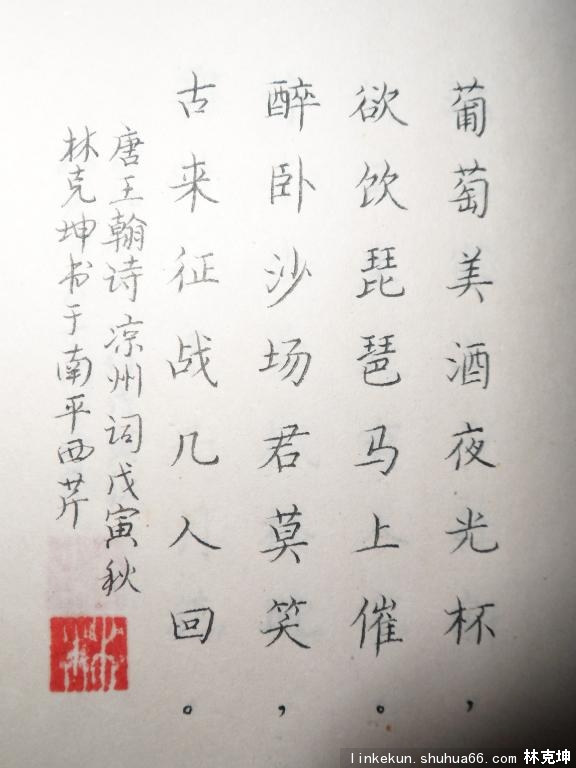 葡萄美酒夜光杯，
欲饮琵琶马上催。
醉卧沙场君莫笑，
古来征战几人回。
唐王翰诗凉州词戊寅秋
林克坤书于南平西芹
林
linkekun.shuhua66.com 林克坤